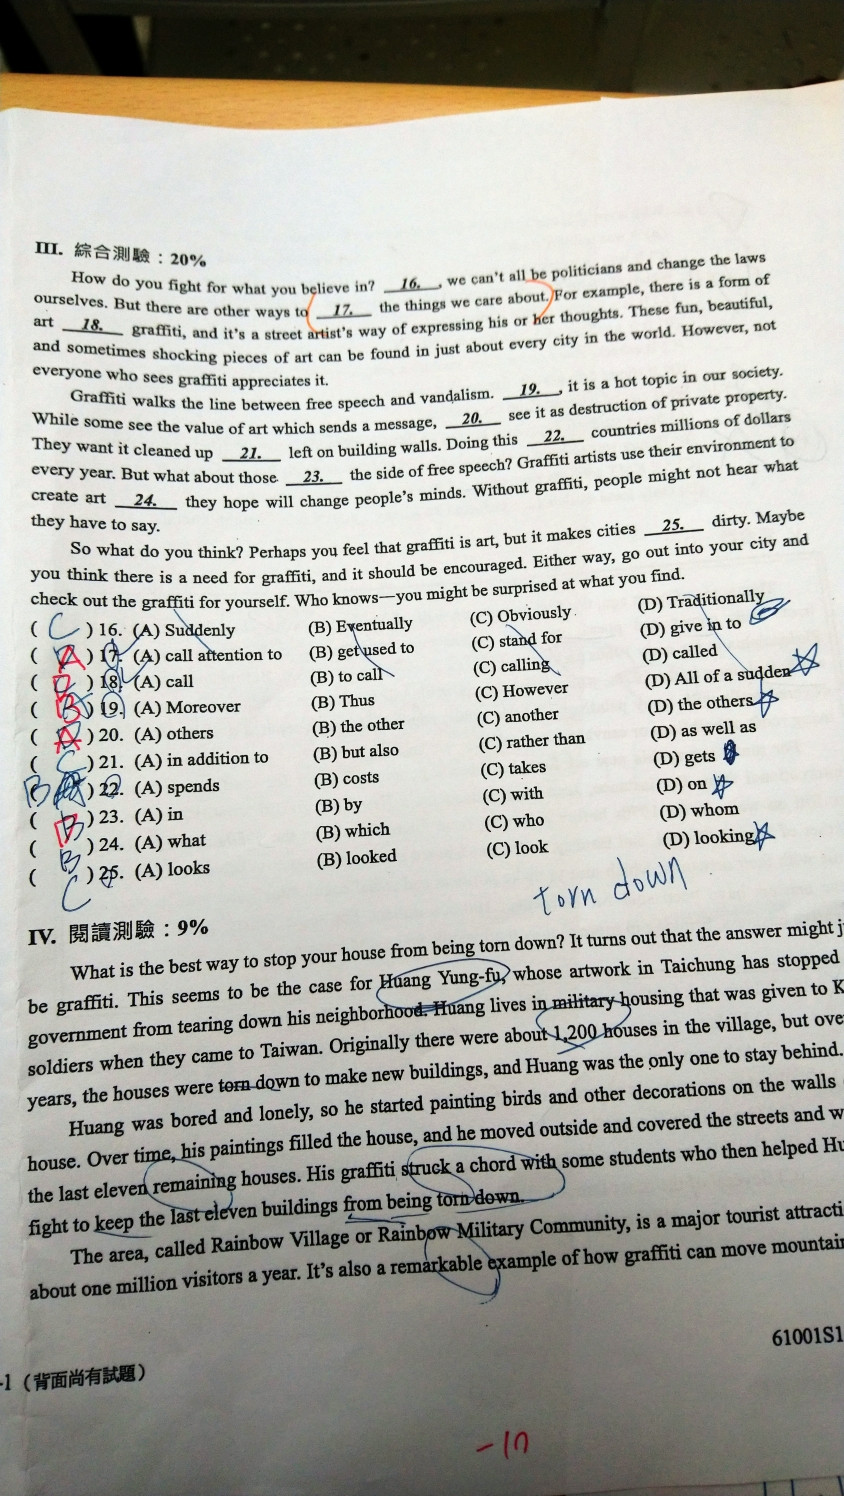 III. 綜合測驗：20%
How do you fight for what you believe in? 16. , we can't all be politicians and change the laws
ourselves. But there are other ways to 17. the things we care about. For example, there is a form of
art 18. graffiti, and it's a street artist's way of expressing his or her thoughts. These fun, beautiful,
and sometimes shocking pieces of art can be found in just about every city in the world. However, not
everyone who sees graffiti appreciates it.
Graffiti walks the line between free speech and vandalism. 19. , it is a hot topic in our society.
While some see the value of art which sends a message, 20. see it as destruction of private property.
They want it cleaned up 21. left on building walls. Doing this 22. countries millions of dollars
every year. But what about those 23. the side of free speech? Graffiti artists use their environment to
create art 24. they hope will change people's minds. Without graffiti, people might not hear what
they have to say.
So what do you think? Perhaps you feel that graffiti is art, but it makes cities 25. dirty. Maybe
you think there is a need for graffiti, and it should be encouraged. Either way, go out into your city and
check out the graffiti for yourself. Who knows—you might be surprised at what you find.
( C ) 16. (A) Suddenly (B) Eventually (C) Obviously (D) Traditionally
( A ) 17. (A) call attention to (B) get used to (C) stand for (D) give in to
( ) 18. (A) call (B) to call (C) calling (D) called
( B ) 19. (A) Moreover (B) Thus (C) However (D) All of a sudden
( A ) 20. (A) others (B) the other (C) another (D) the others
( C ) 21. (A) in addition to (B) but also (C) rather than (D) as well as
B ) 22. (A) spends (B) costs (C) takes (D) gets
( ) 23. (A) in (B) by (C) with (D) on
( B ) 24. (A) what (B) which (C) who (D) whom
( C ) 25. (A) looks (B) looked (C) look (D) looking
torn down
IV. 閱讀測驗：9%
What is the best way to stop your house from being torn down? It turns out that the answer might j
be graffiti. This seems to be the case for Huang Yung-fu, whose artwork in Taichung has stopped
government from tearing down his neighborhood. Huang lives in military housing that was given to K
soldiers when they came to Taiwan. Originally there were about 1,200 houses in the village, but ove
years, the houses were torn down to make new buildings, and Huang was the only one to stay behind.
Huang was bored and lonely, so he started painting birds and other decorations on the walls
house. Over time, his paintings filled the house, and he moved outside and covered the streets and w
the last eleven remaining houses. His graffiti struck a chord with some students who then helped Hu
fight to keep the last eleven buildings from being torn down.
The area, called Rainbow Village or Rainbow Military Community, is a major tourist attracti
about one million visitors a year. It's also a remarkable example of how graffiti can move mountain
61001S1
-1（背面尚有試題）